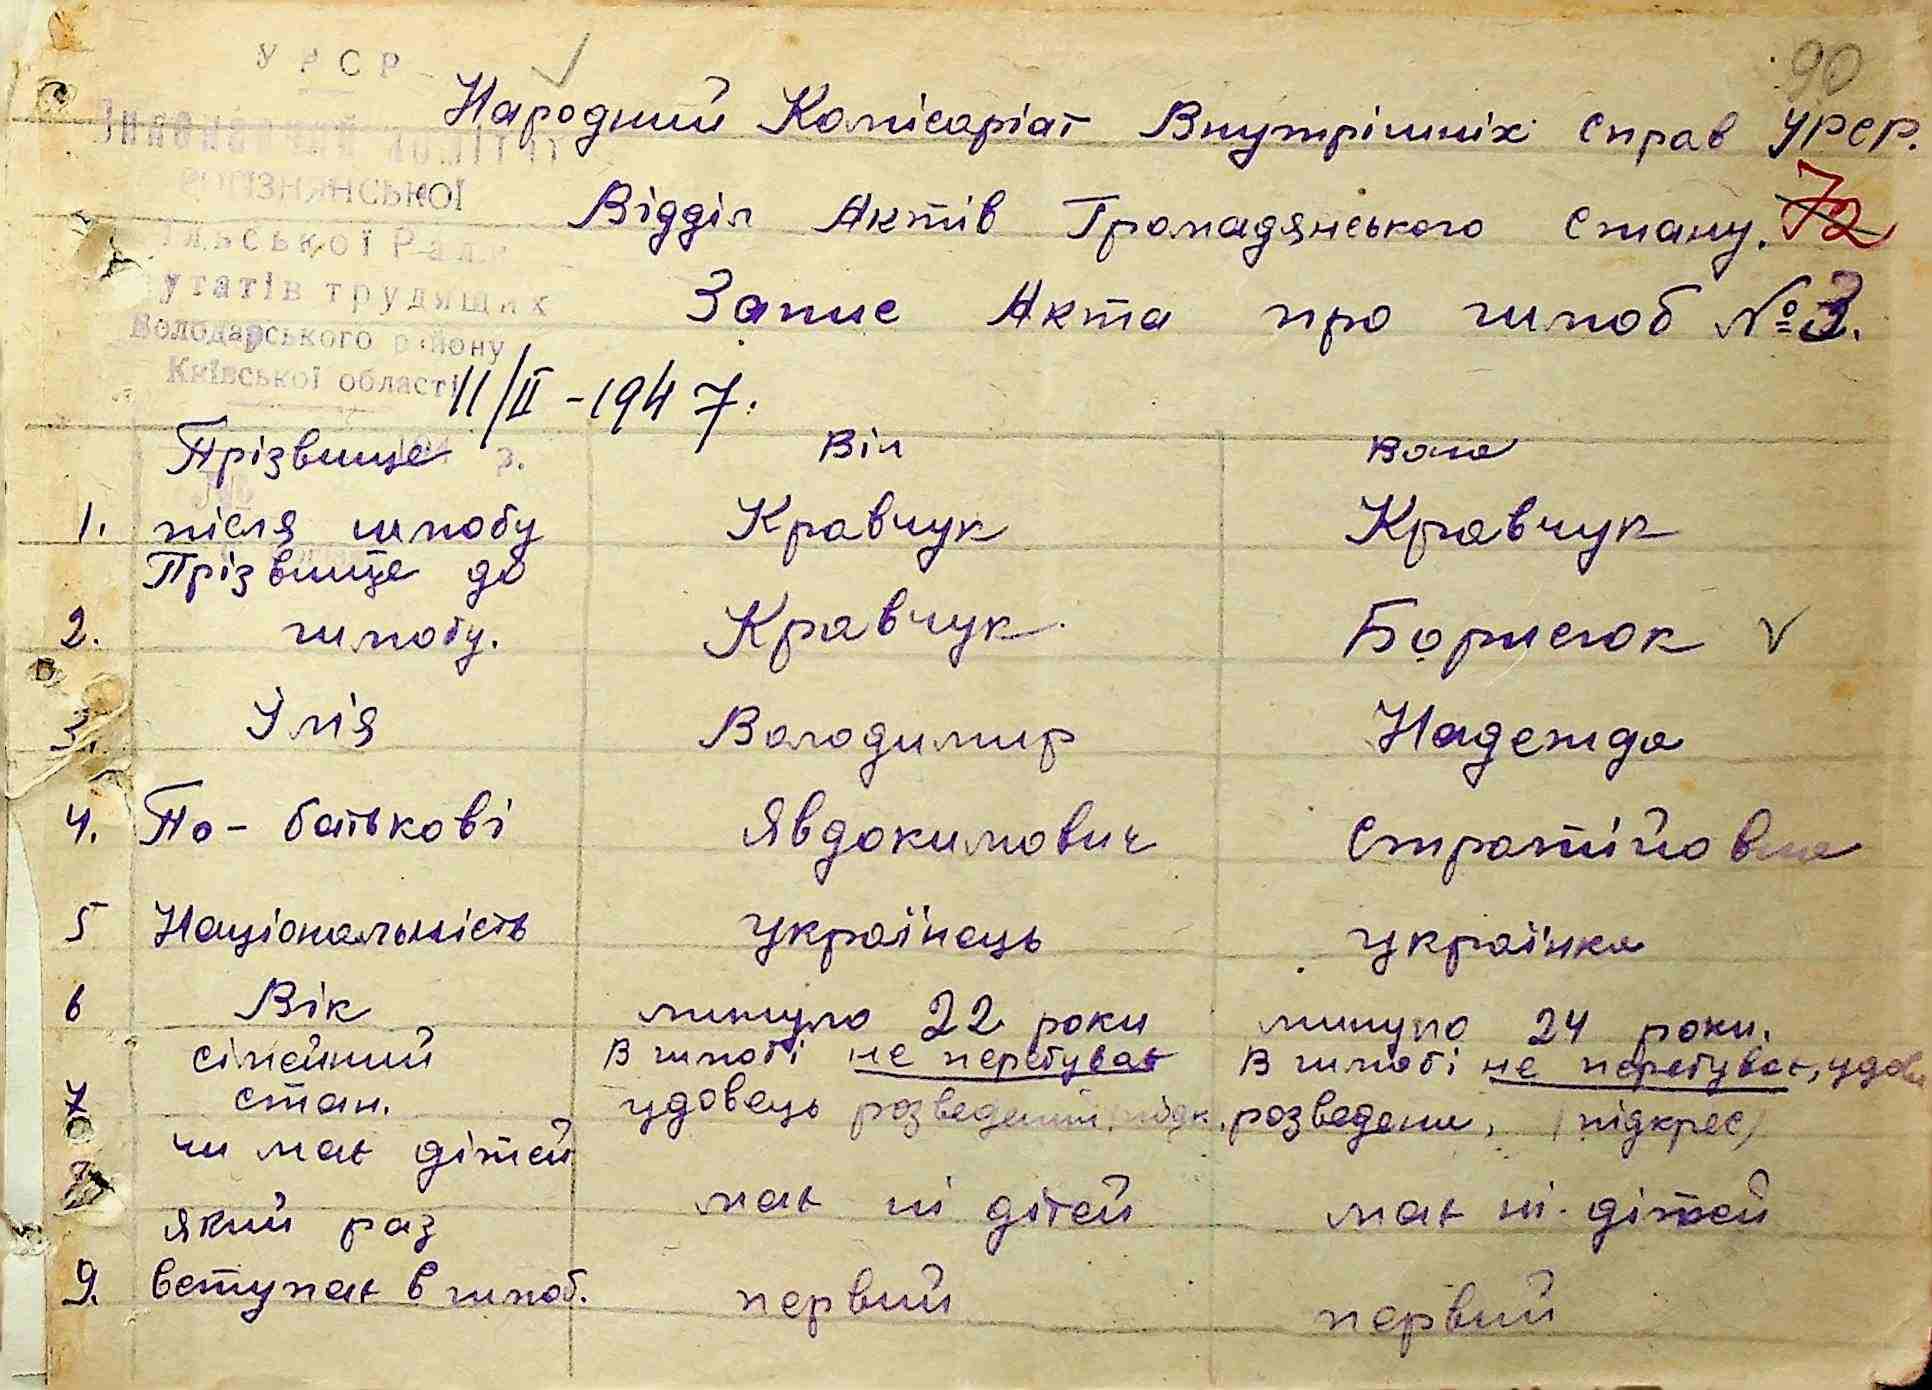 УРСР
90
Народний Комісаріат Внутрішніх Справ УРСР.
комітет
Відділ Актів Громадянського Стану. 72
ільської Ради
утатів трудящих
Запис Акта про шлюб № 3.
Володарського району
Київської області
11/II - 1947.
Прізвище Він Вона
1. після шлюбу Кравчук Кравчук
Прізвище до
2. шлюбу. Кравчук Борисюк
3. Ім'я Володимир Надежда
4. По-батькові Явдокимович Стратійовна
5 Національність українець українка
6 Вік минуло 22 роки минуло 24 роки.
сімейний В шлюбі не перебуває В шлюбі не перебуває, удова
7 стан. удовець розведений, підк. розведена, (підкрес)
чи має дітей
має ні дітей має ні дітей
який раз
9. вступає в шлюб. первий первий